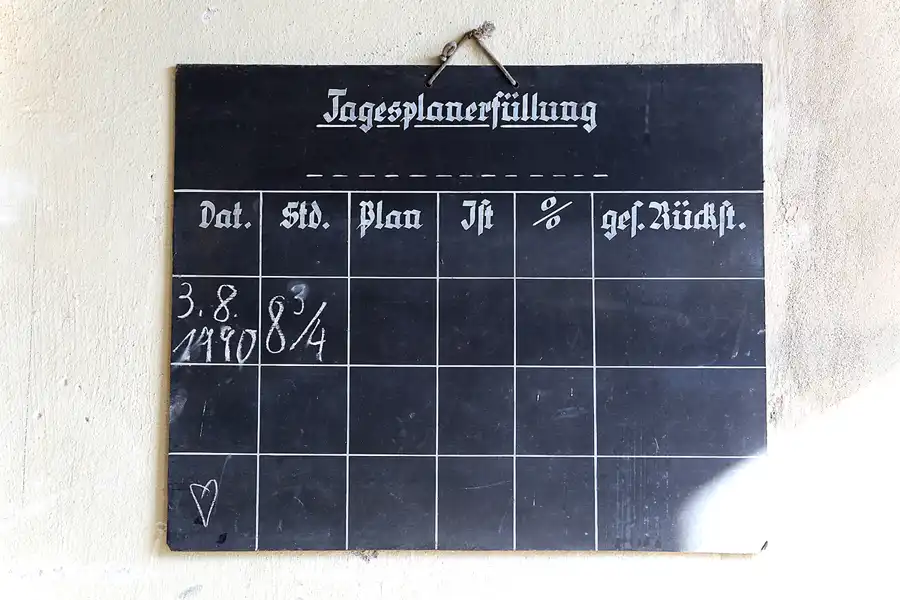 Tagesplanerfüllung
Dat. Std. Plan Ist % ges. Rückst.
3. 8. 8 3/4
1990